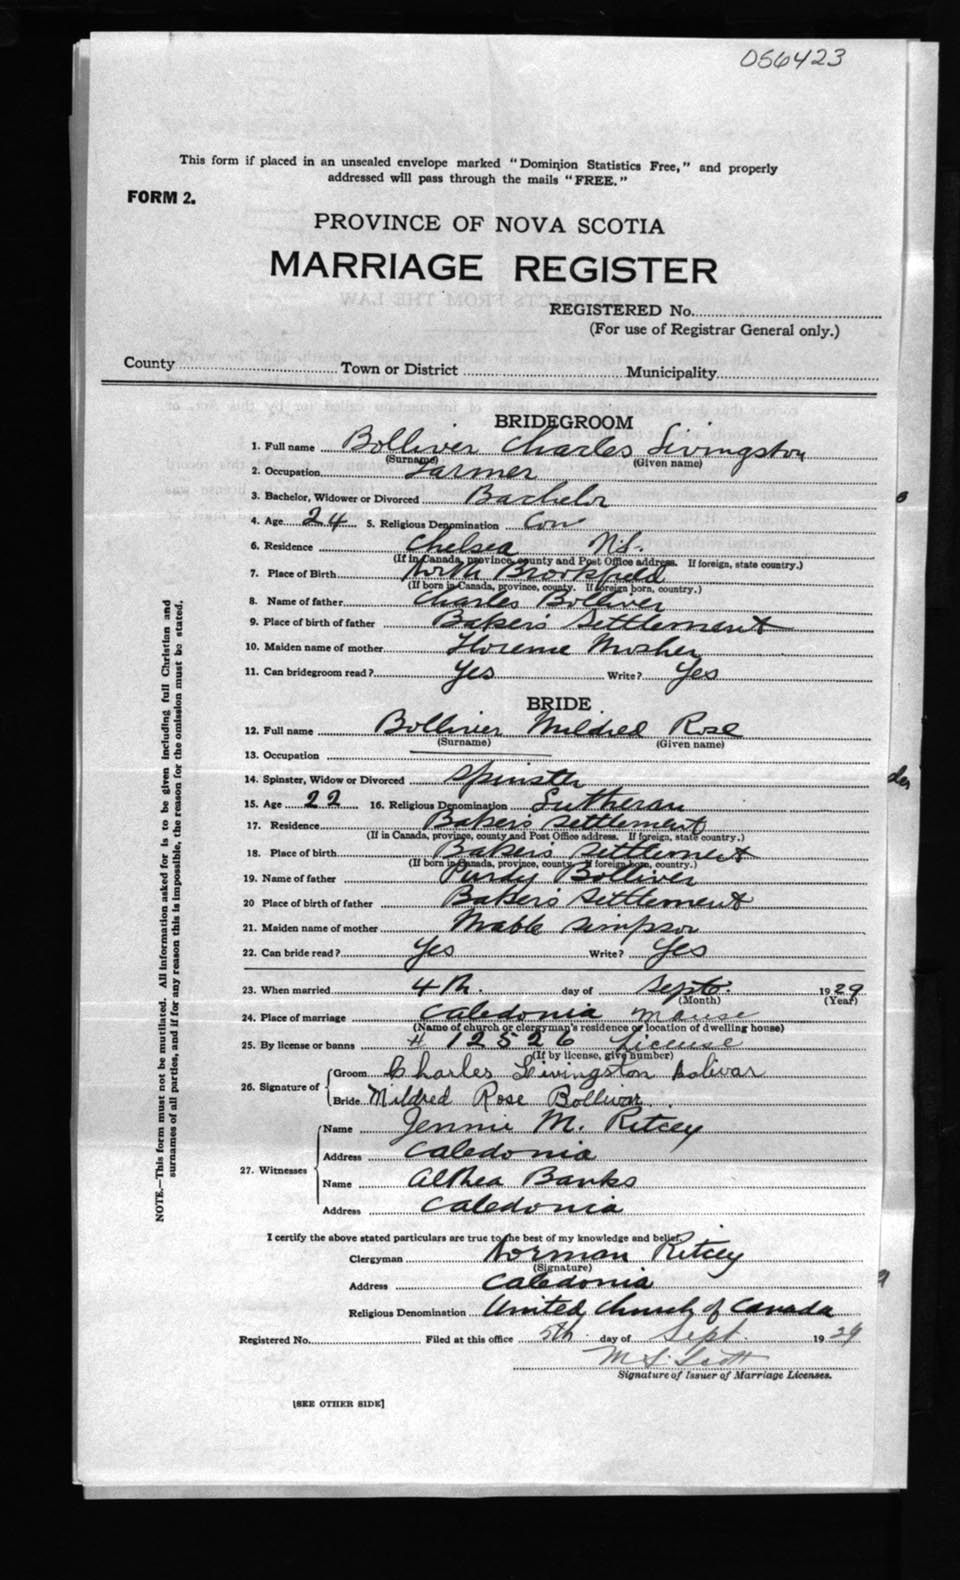 056423
This form if placed in an unsealed envelope marked "Dominion Statistics Free," and properly
addressed will pass through the mails "FREE."
FORM 2.
PROVINCE OF NOVA SCOTIA
MARRIAGE REGISTER
REGISTERED No.
(For use of Registrar General only.)
County Town or District Municipality
BRIDEGROOM
1. Full name Bolliver Charles Livingston
(Surname) (Given name)
2. Occupation Farmer
3. Bachelor, Widower or Divorced Bachelor
4. Age 24 5. Religious Denomination Con
6. Residence Chelsea N.S.
(If in Canada, province, county and Post Office address. If foreign, state country.)
7. Place of Birth North Brookfield
(If born in Canada, province, county. If foreign born, country.)
8. Name of father Charles Bolliver
9. Place of birth of father Bakers Settlement
10. Maiden name of mother Florence Mosher
11. Can bridegroom read? Yes Write? Yes
BRIDE
12. Full name Bolliver Mildred Rose
(Surname) (Given name)
13. Occupation
14. Spinster, Widow or Divorced Spinster
15. Age 22 16. Religious Denomination Lutheran
17. Residence Bakers Settlement
(If in Canada, province, county and Post Office address. If foreign, state country.)
18. Place of birth Bakers Settlement
(If born in Canada, province, county. If foreign born, country.)
19. Name of father Purdy Bolliver
20 Place of birth of father Bakers Settlement
21. Maiden name of mother Mable Simpson
22. Can bride read? Yes Write? Yes
23. When married 4th. day of Sept. 1929
(Month) (Year)
24. Place of marriage Caledonia Manse
(Name of church or clergyman's residence or location of dwelling house)
25. By license or banns # 12526 License
(If by license, give number)
26. Signature of Groom Charles Livingston Bolivar
Bride Mildred Rose Bollivar
27. Witnesses
Name Jennie M. Ritcey
Address Caledonia
Name Althea Banks
Address Caledonia
I certify the above stated particulars are true to the best of my knowledge and belief.
Clergyman Norman Ritcey
(Signature)
Address Caledonia
Religious Denomination United Church of Canada
Registered No. Filed at this office 5th day of Sept. 1929
M S. Scott
Signature of Issuer of Marriage Licenses.
[SEE OTHER SIDE]
NOTE.—This form must not be mutilated. All information asked for is to be given including full Christian and
surnames of all parties, and if for any reason this is impossible, the reason for the omission must be stated.